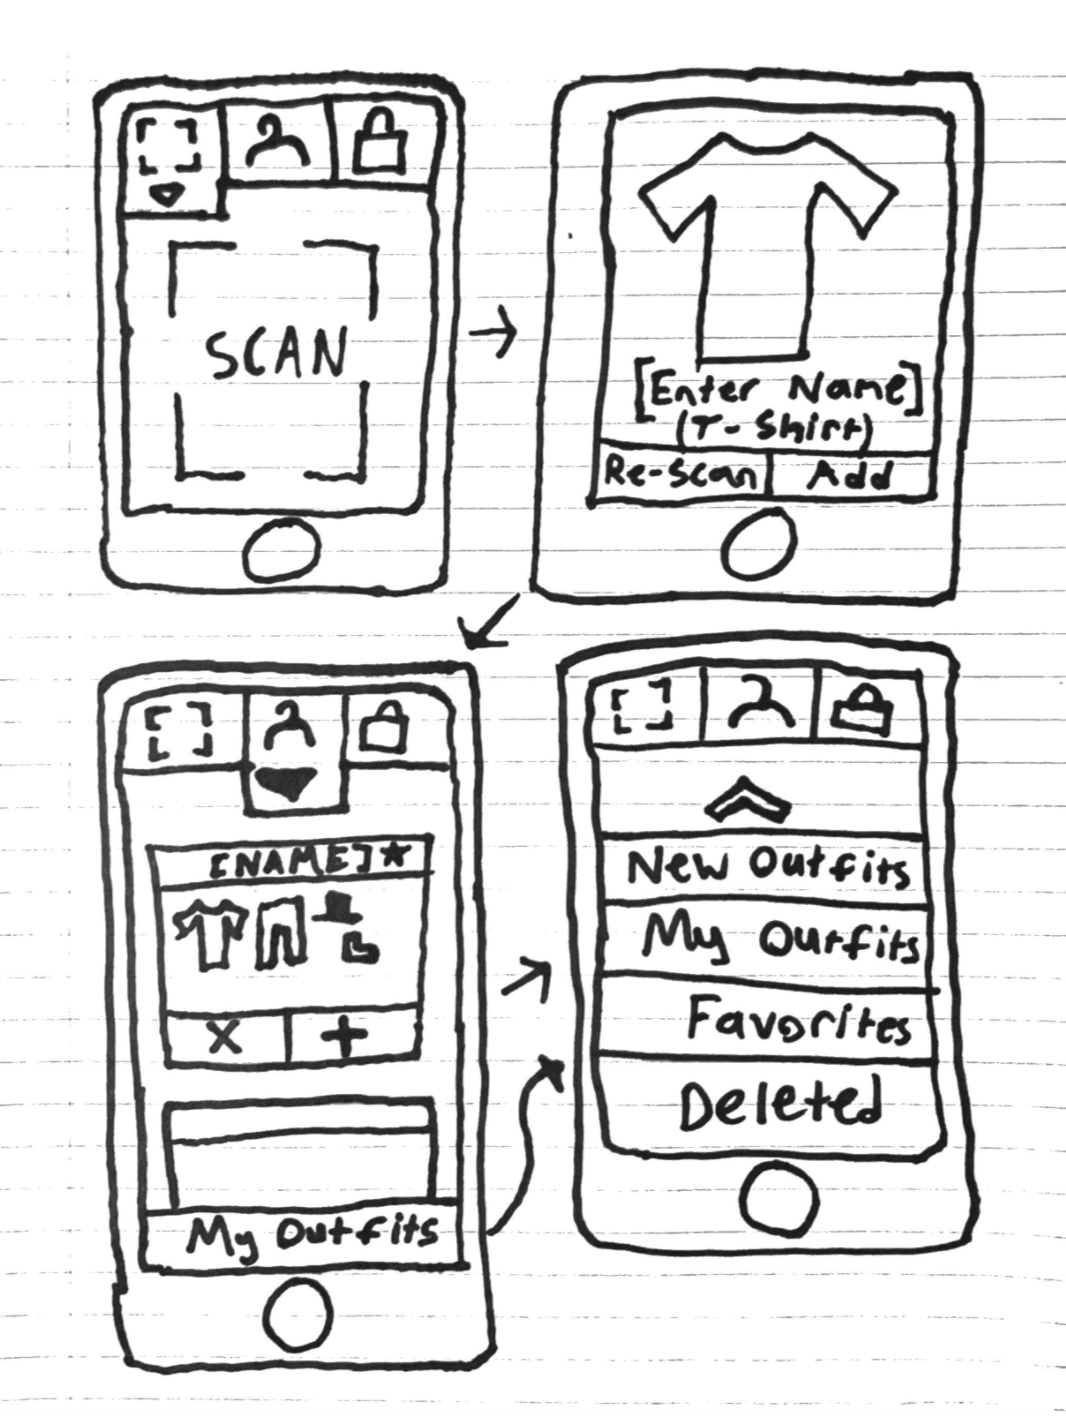 SCAN
[Enter Name]
(T-Shirt)
Re-Scan Add
[NAME]★
X +
My Outfits
New Outfits
My Outfits
Favorites
Deleted